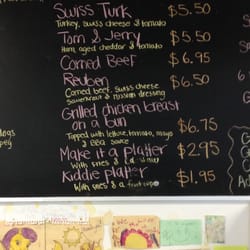 Swiss Turk $5.50
Turkey, swiss cheese & tomato
Tom & Jerry $5.50
Ham, aged cheddar & tomato
Corned Beef $6.95
Reuben $6.50
Corned beef, swiss cheese
Sauerkraut & russian dressing
Grilled chicken breast
on a bun $6.75
Topped with lettuce, tomato, mayo
& BBQ sauce
Make it a platter $2.95
With fries &
Kiddie platter $1.95
With fries & a fruit cup